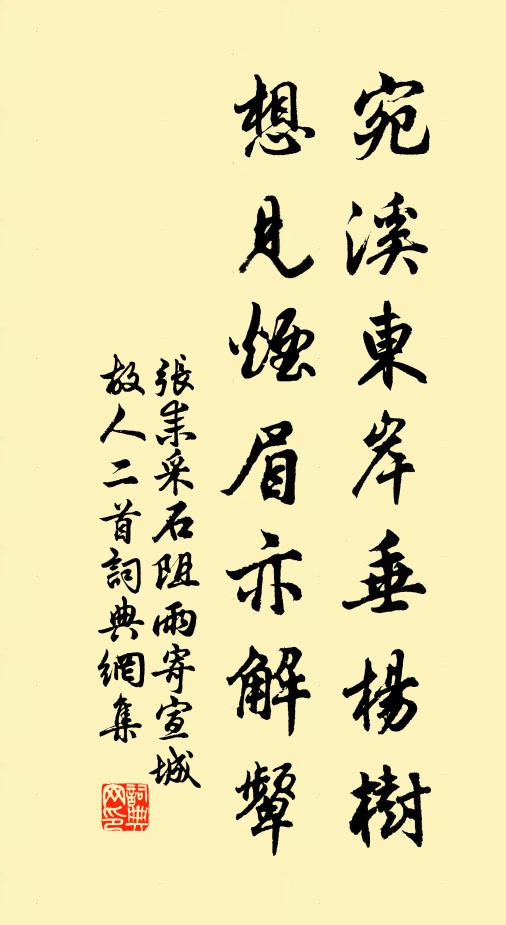 宛溪東岸垂楊樹
想見煙眉亦解顰
張耒采石阻雨寄宣城
故人二首詞典網集
詞典
网印